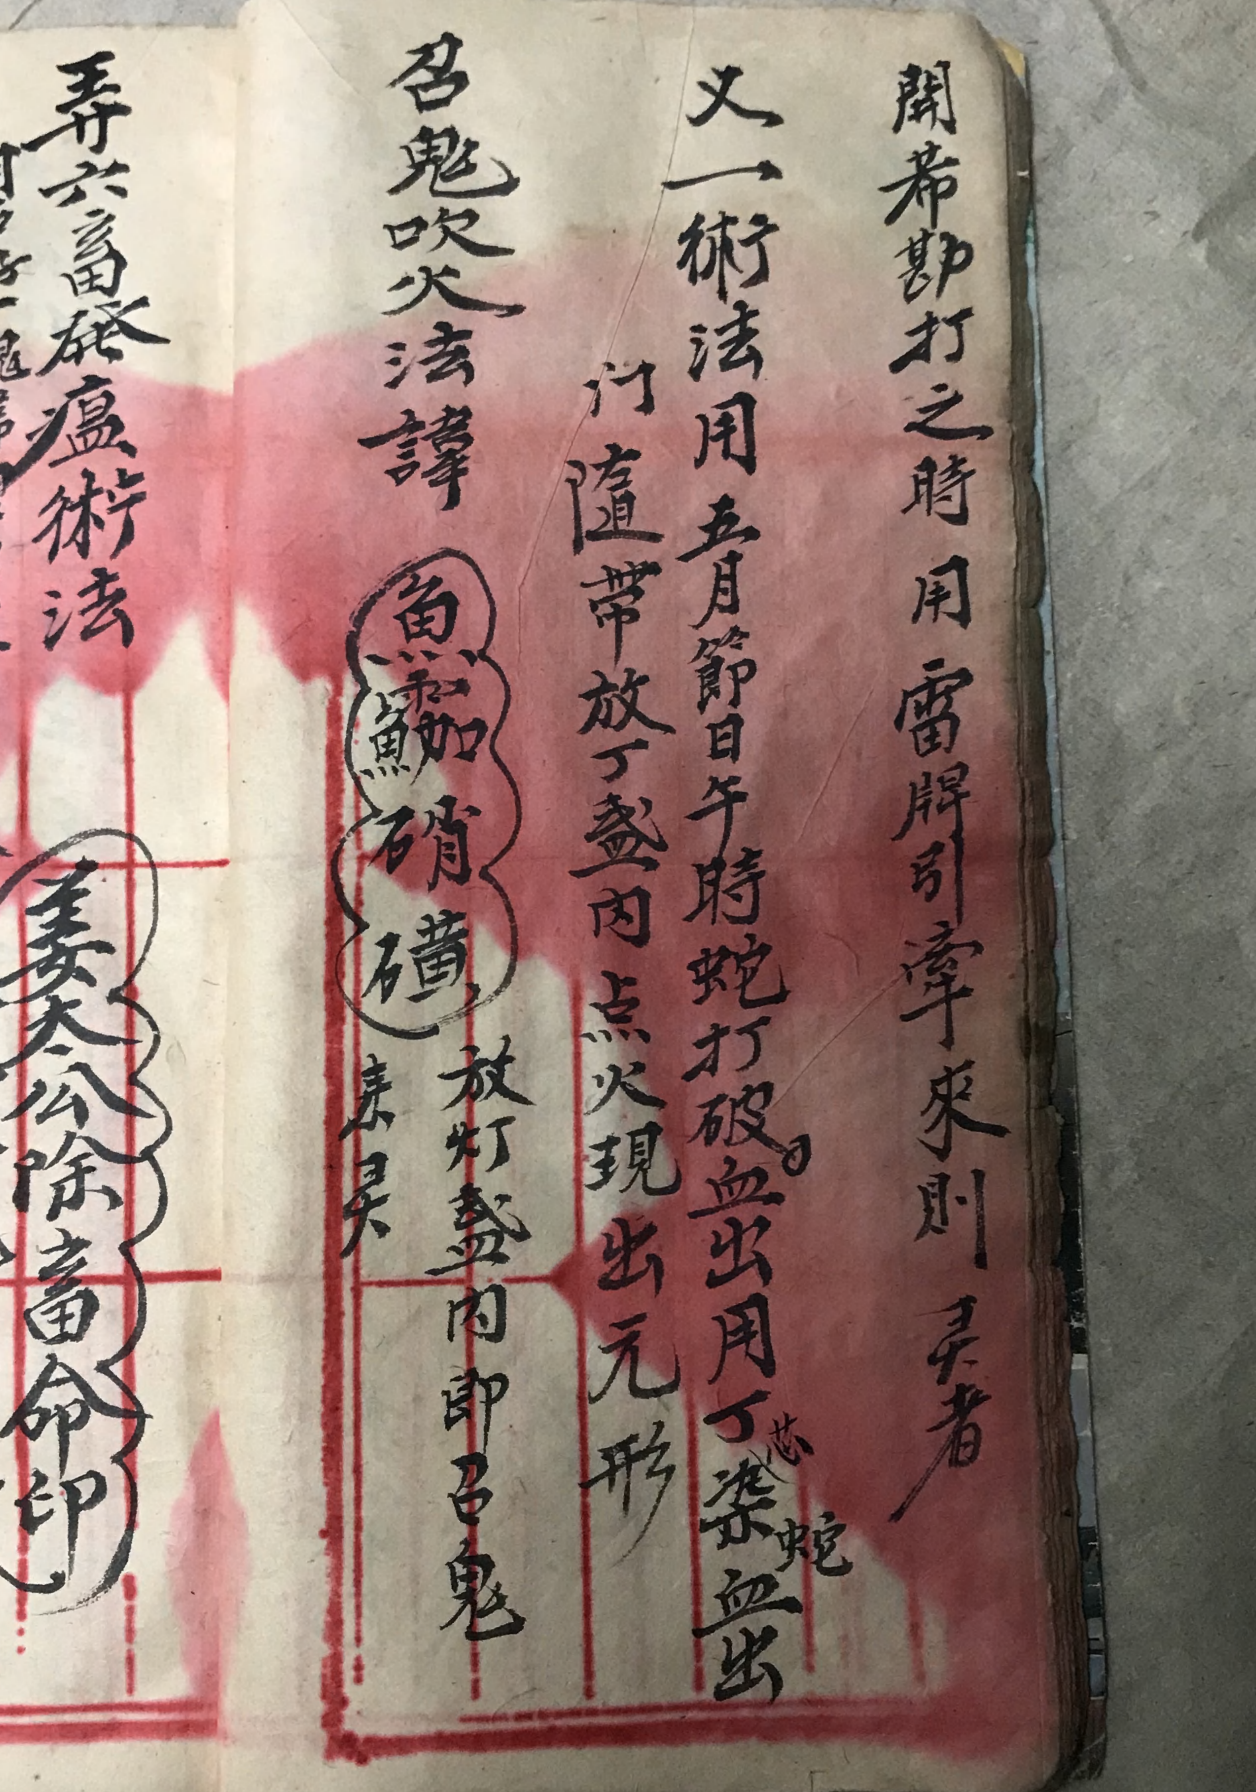 開希勘打之時用雷牌引牽來則灵者
又一術法用五月節日午時蛇打破血出用丁芯染蛇血出
门随帶放丁盏内点火現出元形
召鬼吹火法諱
硝磺
放灯盏内即召鬼
来灵
弄六畜發瘟術法
姜太公除畜命印